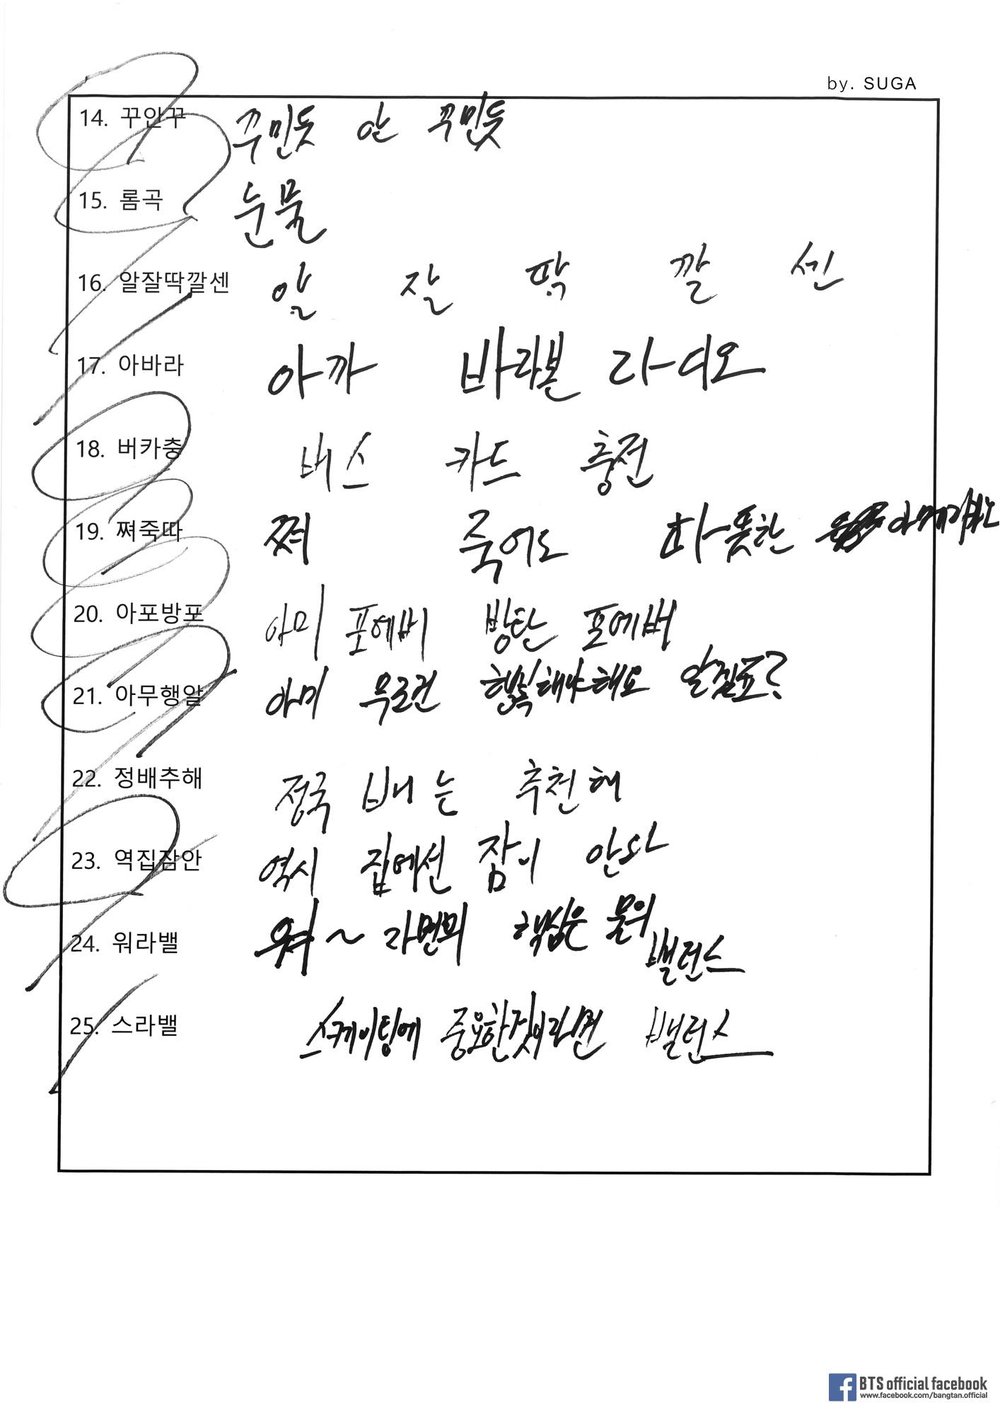 by. SUGA
14. 꾸안꾸 꾸민듯 안 꾸민듯
15. 롬곡 눈물
16. 알잘딱깔센 알 잘 딱 깔 센
17. 아바라 아까 바라본 라디오
18. 버카충 버스 카드 충전
19. 쪄죽따 쪄 죽어도 따뜻한
20. 아포방포 아미 포에버 방탄 포에버
21. 아무행알 아미 무조건 행복해야해요 알겠죠?
22. 정배추해 정국 배는 추천해
23. 역집잠안 역시 집에선 잠이 안와
24. 워라밸 워~ 라면의 핵심은 물의
밸런스
25. 스라밸 스케이팅에 중요한것이라면 밸런스
BTS official facebook
www.facebook.com/bangtan.official